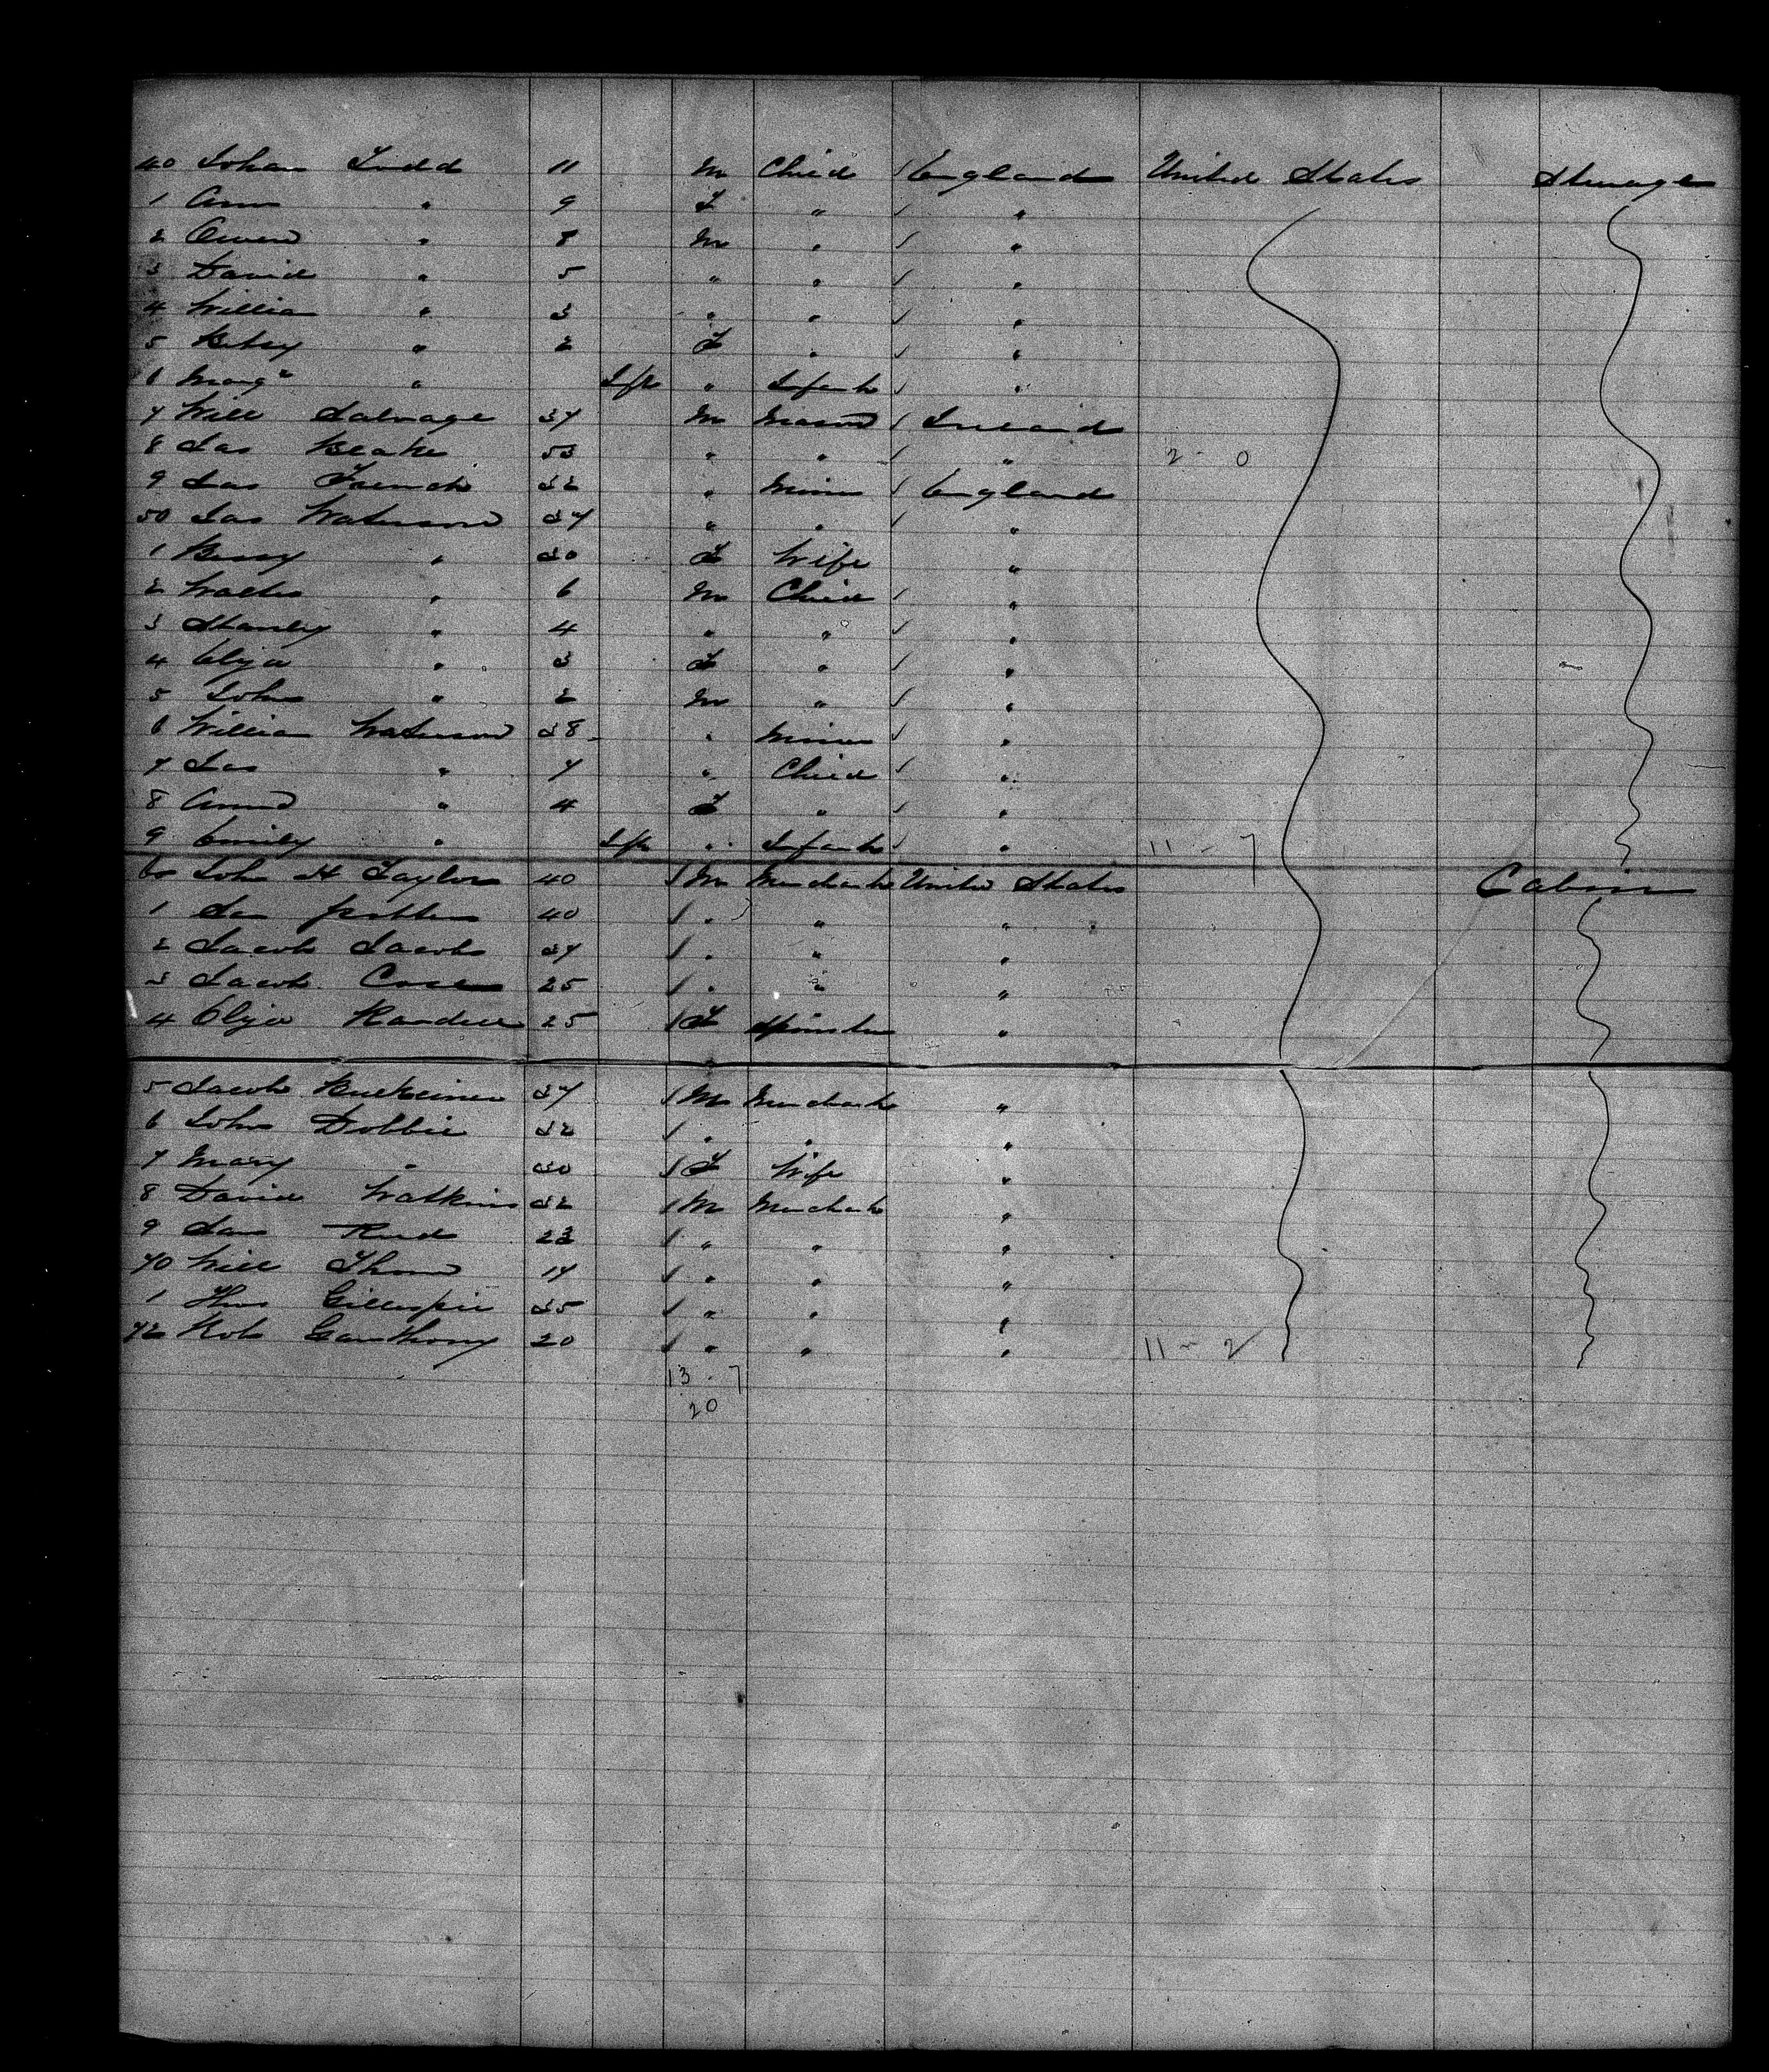 40 Johan Judd 11 M Child ✓ England United States Steerage
1 Ann " 9 F " ✓ "
2 Owen " 8 M " ✓ "
3 David " 5 " " ✓ "
4 William " 3 " " ✓ "
5 Betsy " 2 F " ✓ "
6 Marg " Inft " Infant ✓ "
7 Will Salvage 37 M Mason ✓ Ireland
8 Jas Beake 53 " " ✓ " 2 - 0
9 Jas French 32 " Miner ✓ England
50 Jas Waterson 37 " " ✓ "
1 " 30 F Wife "
2 Walter " 6 M Child ✓ "
3 Stanley " 4 " " ✓ "
4 Eliza " 3 F " ✓ "
5 John " 2 M " ✓ "
6 William Waterson 38 " Miner ✓ "
7 Jas " 7 " Child ✓ "
8 Ann " 4 F " ✓ "
9 Emily " Inft " Infant ✓ " 11 - 7
60 John H Taylor 40 ✓ M Merchant United States Cabin
1 40 ✓ " " "
2 Jacob Jacobs 37 ✓ " " "
3 Jacob 25 ✓ " " "
4 Eliza Randell 25 ✓ F Spinster "
5 Jacob 37 ✓ M Merchant "
6 John Dobbie 32 ✓ " " "
7 Mary " 30 ✓ F Wife "
8 David Watkins 32 ✓ M Merchant "
9 23 ✓ " " "
70 Will Thom 17 ✓ " " "
1 Thos Gillespie 35 ✓ " " "
72 Rob Gawthony 20 ✓ " " " 11 - 2
13 - 7
20